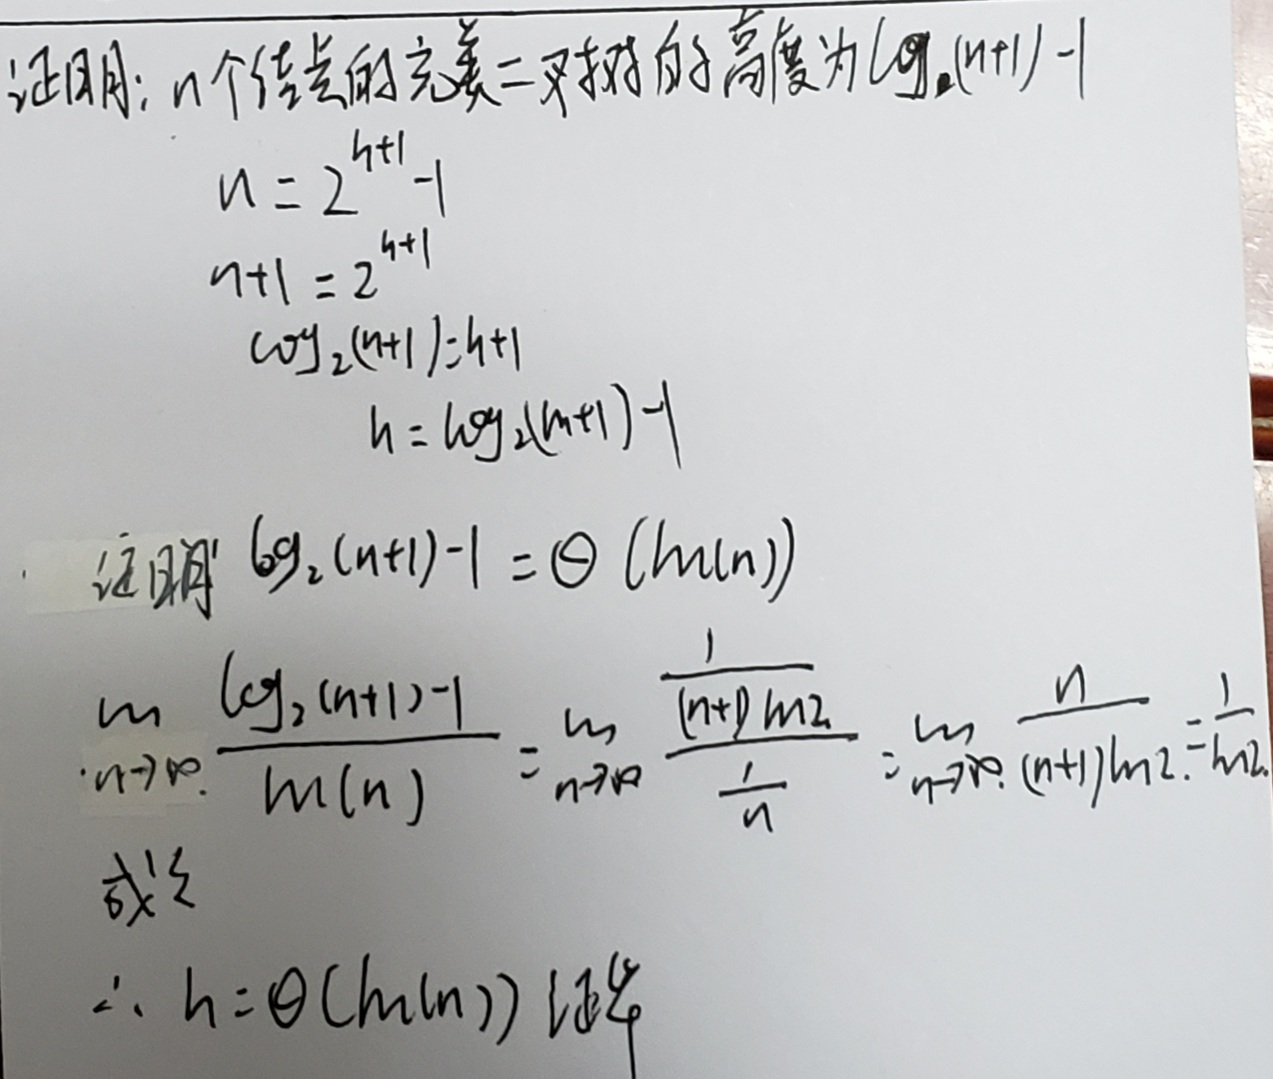 证明: n个结点的完美二叉树的高度为log₂(n+1)-1
n = 2^{h+1} - 1
n+1 = 2^{h+1}
log₂(n+1) = h+1
h = log₂(n+1) - 1
证明 log₂(n+1)-1 = Θ(ln(n))
lim_{n→∞} \frac{log₂(n+1)-1}{ln(n)} = lim_{n→∞} \frac{\frac{1}{(n+1)ln2}}{\frac{1}{n}} = lim_{n→∞} \frac{n}{(n+1)ln2} = \frac{1}{ln2}
∴ h = Θ(ln(n)) 证毕